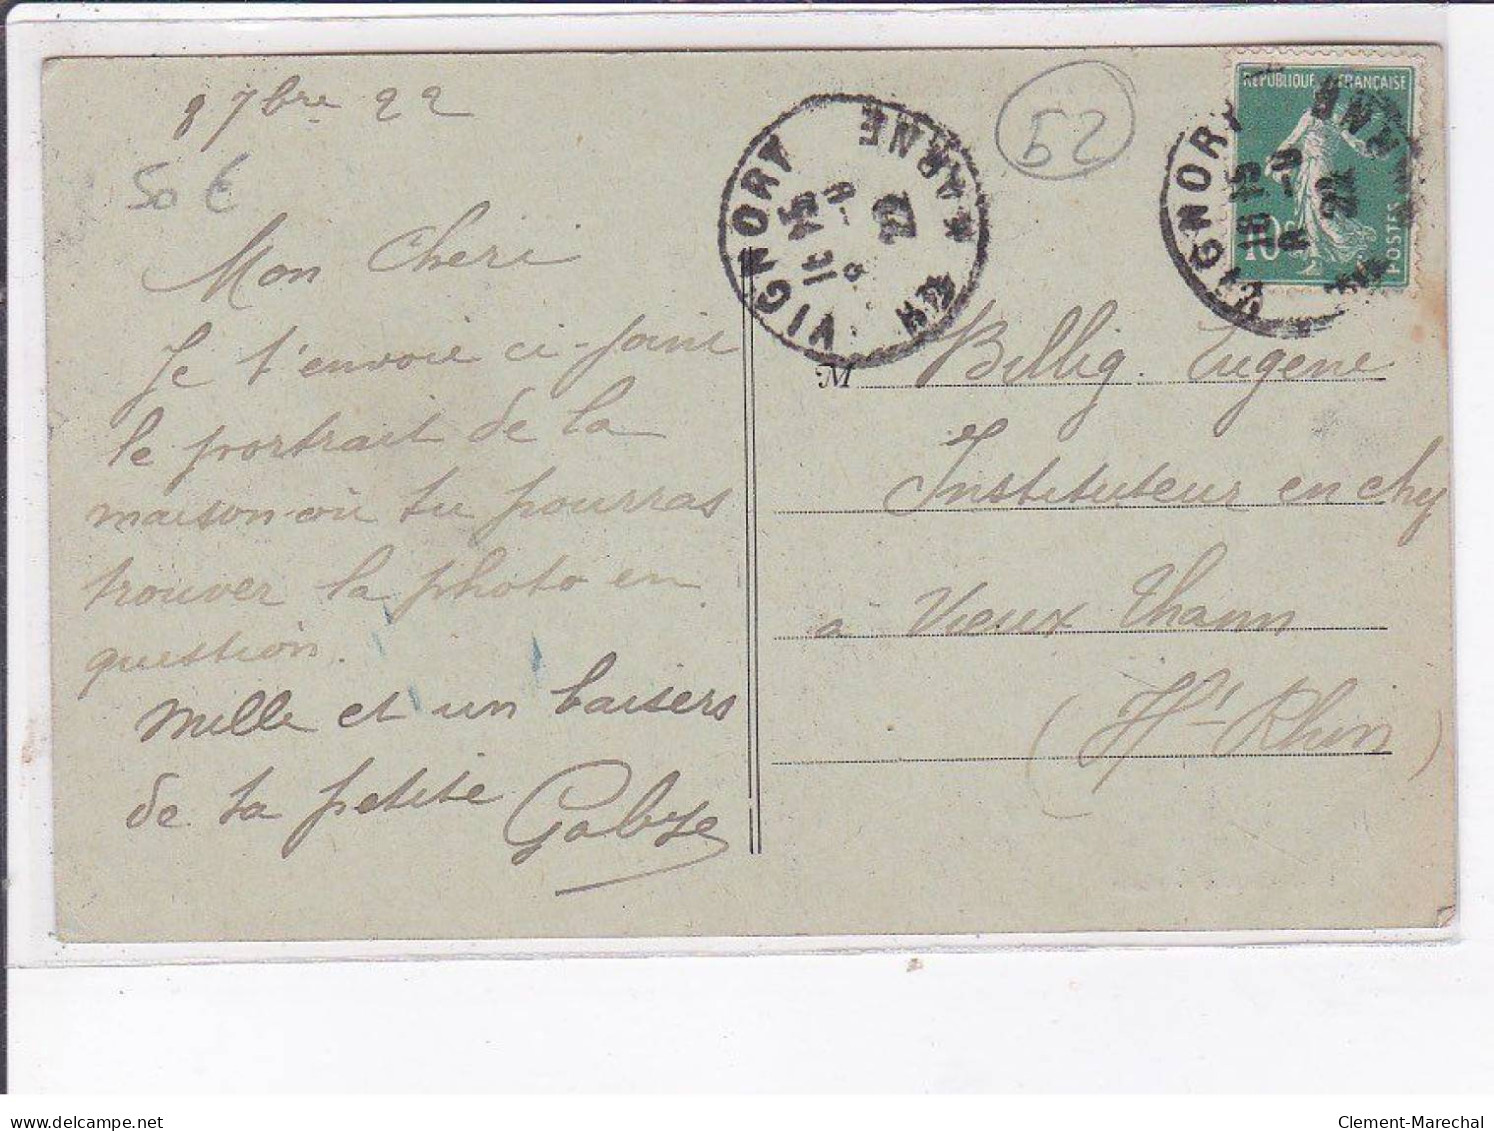 8 7bre 22
50 €
Mon Cheri
Je t'envoie ci-joint
le portrait de la
maison où tu pourras
trouver la photo en
question.
Mille et un baisers
de ta petite
Gabye
VIGNORY
15
8-9
22
Hte MARNE
52
RÉPUBLIQUE FRANÇAISE
10c
POSTES
VIGNORY
18 15
8-9
22
Hte MARNE
M Billig. Eugene
Instituteur en chef
à Vieux Thann
(Ht Rhin)
delcampe.net
Clement-Marechal